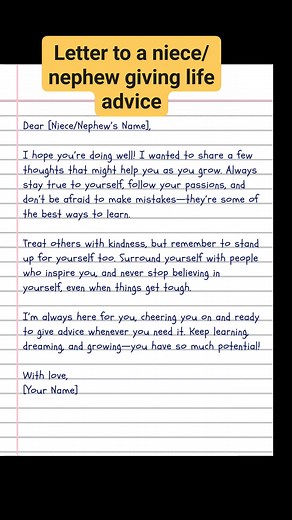 Letter to a niece/
nephew giving life
advice
Dear [Niece/Nephew's Name],
I hope you're doing well! I wanted to share a few
thoughts that might help you as you grow. Always
stay true to yourself, follow your passions, and
don't be afraid to make mistakes—they're some of
the best ways to learn.
Treat others with kindness, but remember to stand
up for yourself too. Surround yourself with people
who inspire you, and never stop believing in
yourself, even when things get tough.
I'm always here for you, cheering you on and ready
to give advice whenever you need it. Keep learning,
dreaming, and growing—you have so much potential!
With love,
[Your Name]